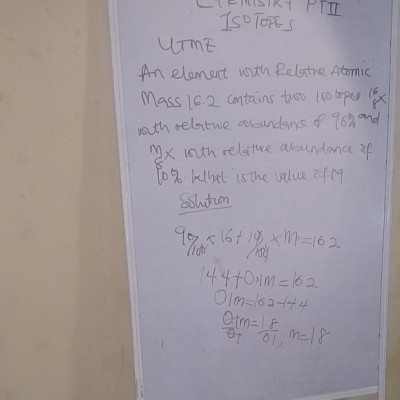 CHEMISTRY PT II
ISOTOPES
UTME
An element with Relative Atomic
Mass 16.2 contains two isotopes 16 8 X
with relative abundance of 90% and
m 8 X with relative abundance of
10%. What is the value of M
Solution
90/100 x 16 + 10/100 x M = 16.2
14.4 + 0.1M = 16.2
0.1M = 16.2 - 14.4
0.1M/0.1 = 1.8/0.1, m = 18